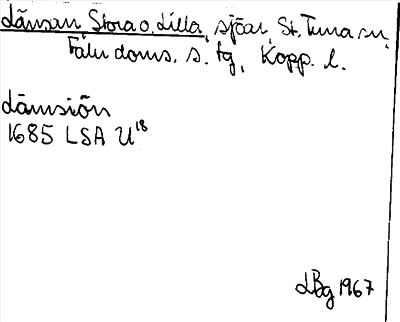 Lämsan Stora o. Lilla, sjöar, St. Tuna sn,
Falu doms. s. tg, Kopp. l.
Lämsiön
1685 LSA U18
LBg 1967